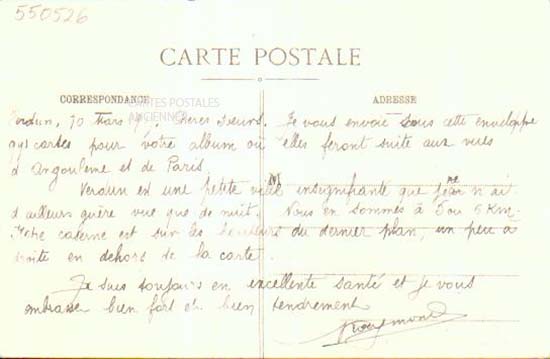 550526
CARTE POSTALE
CARTES POSTALES
ANCIENNES
CORRESPONDANCE
ADRESSE
Verdun, Mars Chères sœurs. Je vous envoie sous cette enveloppe
cartes pour votre album où elles feront suite aux vues
d'Angoulême et de Paris.
Verdun est une petite ville insignifiante que je n'ai
d'ailleurs guère vue que de nuit. Nous en sommes à 5 ou 6 Km.
Notre caserne est sur les hauteurs du dernier plan, un peu à
droite en dehors de la carte.
Je suis toujours en excellente santé et je vous
embrasse bien fort et bien tendrement